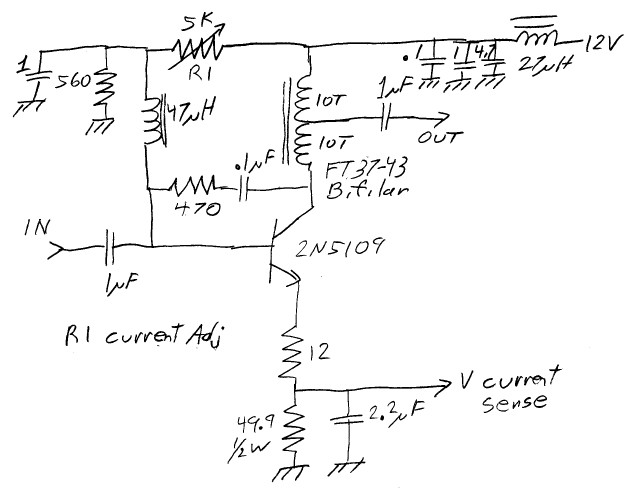 5K
R1
1
560
47µH
10T
10T
.1
1
4.7
27µH
12V
1µF
OUT
FT37-43
Bifilar
.1µF
470
IN
1µF
2N5109
R1 current Adj
12
V current
sense
49.9
1/2W
2.2µF